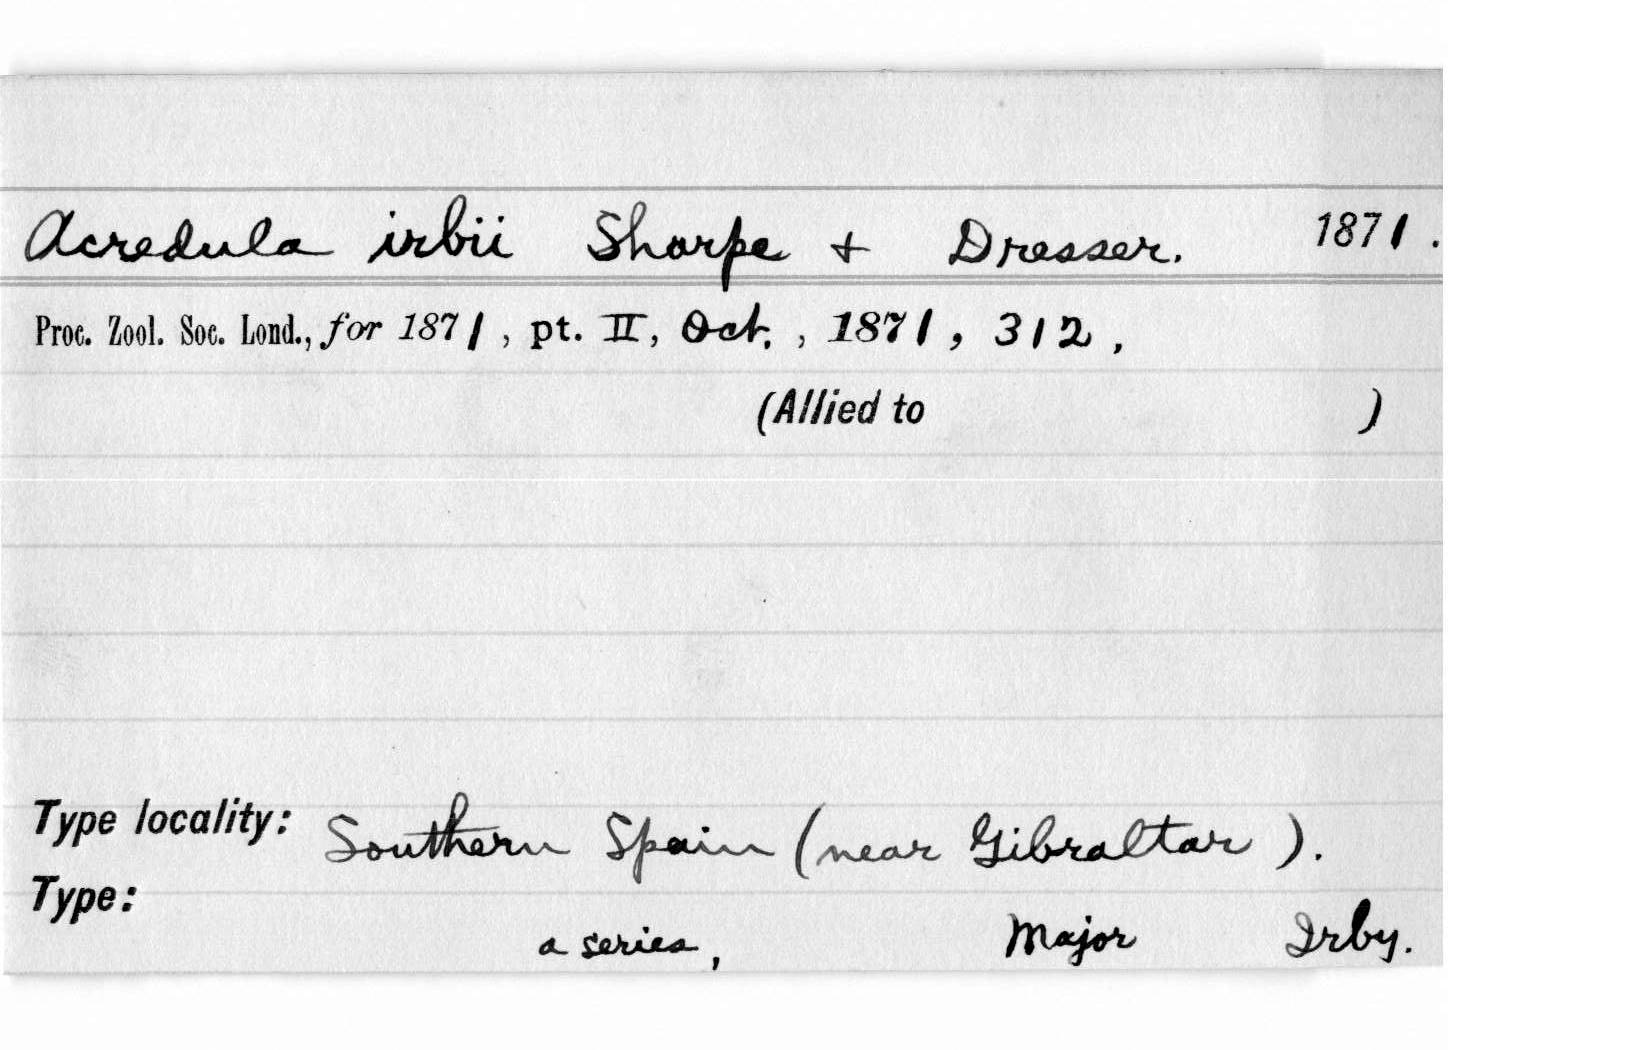 Acredula irbii Sharpe + Dresser. 1871.
Proc. Zool. Soc. Lond., for 1871, pt. II, Oct., 1871, 312,
(Allied to )
Type locality: Southern Spain (near Gibraltar).
Type:
a series, Major Irby.